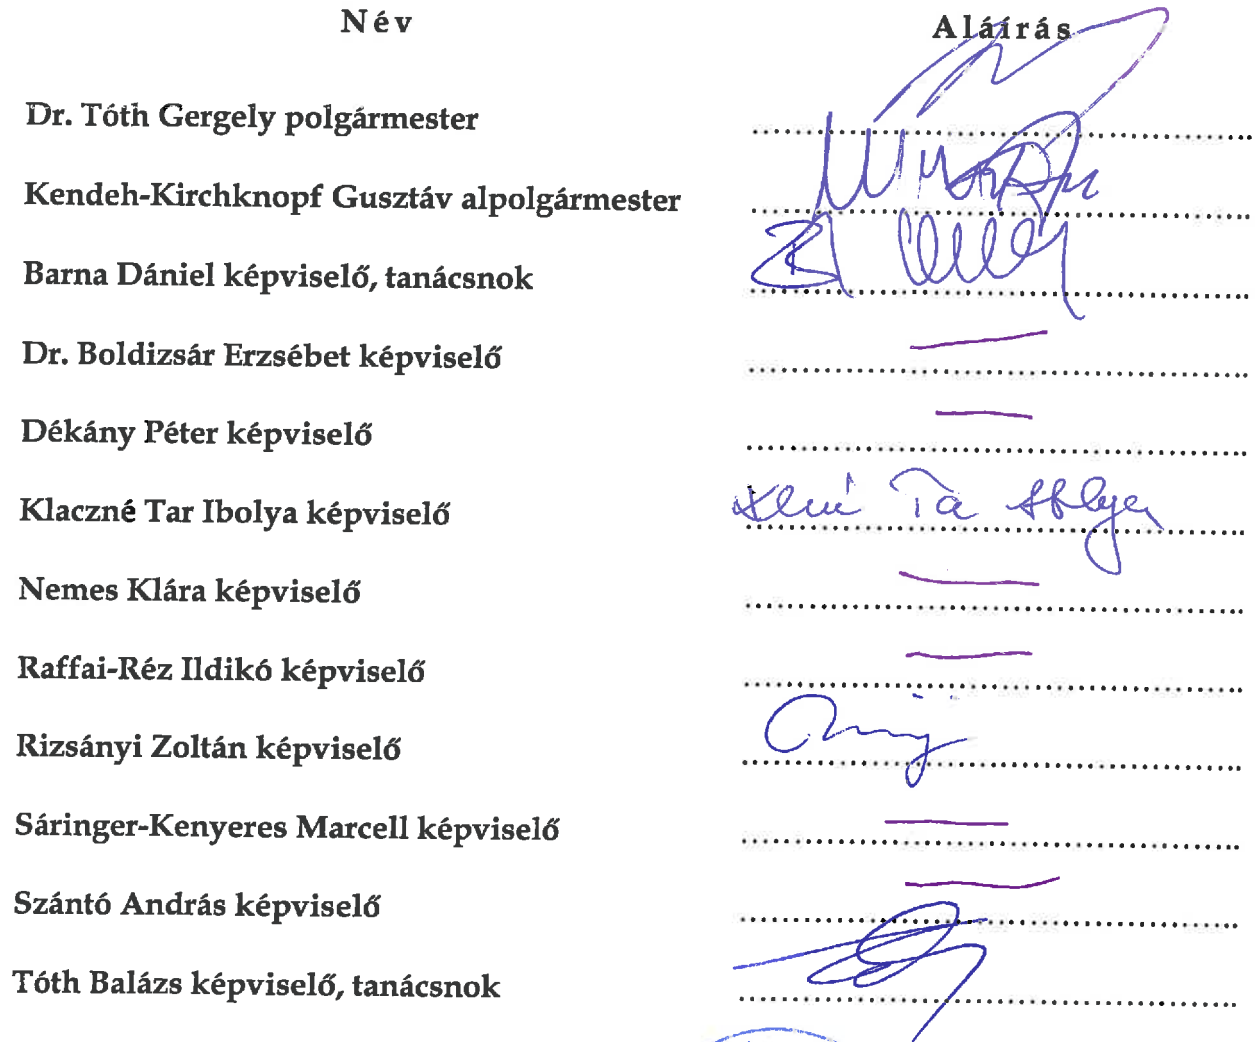 Név Aláírás
Dr. Tóth Gergely polgármester
Kendeh-Kirchknopf Gusztáv alpolgármester
Barna Dániel képviselő, tanácsnok
Dr. Boldizsár Erzsébet képviselő
Dékány Péter képviselő
Klaczné Tar Ibolya képviselő
Nemes Klára képviselő
Raffai-Réz Ildikó képviselő
Rizsányi Zoltán képviselő
Sáringer-Kenyeres Marcell képviselő
Szántó András képviselő
Tóth Balázs képviselő, tanácsnok